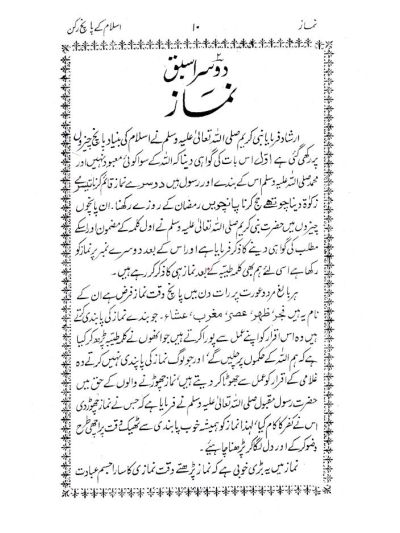 نماز ۱۰ اسلام کے پانچ رکن
دوسرا سبق
نماز
ارشاد فرمایا نبی کریم صلی اللہ تعالیٰ علیہ وسلم نے اسلام کی بنیاد پانچ چیزوں
پر رکھی گئی ہے اوّل اس بات کی گواہی دینا کہ اللہ کے سوا کوئی معبود نہیں اور
محمد صلی اللہ علیہ وسلم اس کے بندے اور رسول ہیں دوسرے نماز قائم کرنا تیسرے
زکوٰۃ دینا چوتھے حج کرنا پانچویں رمضان کے روزے رکھنا۔ ان پانچوں
چیزوں میں حضرت نبی کریم صلی اللہ تعالیٰ علیہ وسلم نے اول کلمہ کے مضمون اور اسکے
مطلب کی گواہی دینے کا ذکر فرمایا ہے اور اس کے بعد دوسرے نمبر پر نماز کو
رکھا ہے اسی لئے ہم بھی کلمہ طیبہ کے بعد نماز ہی کا ذکر کر رہے ہیں۔
ہر بالغ مرد و عورت پر رات دن میں پانچ وقت نماز فرض ہے ان کے
نام یہ ہیں فجر، ظہر، عصر، مغرب، عشاء۔ جو بندے نماز کی پابندی کرتے
ہیں وہ اس اقرار کو اپنے عمل سے پورا کرتے ہیں جو انھوں نے کلمہ طیبہ پڑھ کر کیا
ہے کہ ہم اللہ کے حکموں پر چلیں گے اور جو لوگ نماز کی پابندی نہیں کرتے وہ
غلامی کے اقرار کو عمل سے جھوٹا کر دیتے ہیں، نماز چھوڑنے والوں کے حق میں
حضرت رسول مقبول صلی اللہ تعالیٰ علیہ وسلم نے فرمایا ہے کہ جس نے نماز چھوڑ دی
اس نے کفر کا کام کیا، لہٰذا نماز کو ہمیشہ خوب پابندی سے ٹھیک وقت پر اچھی طرح
وضو کر کے اور دل لگا کر پڑھنا چاہیئے۔
نماز میں یہ بڑی خوبی ہے کہ نماز پڑھتے وقت نمازی کا سارا جسم عبادت